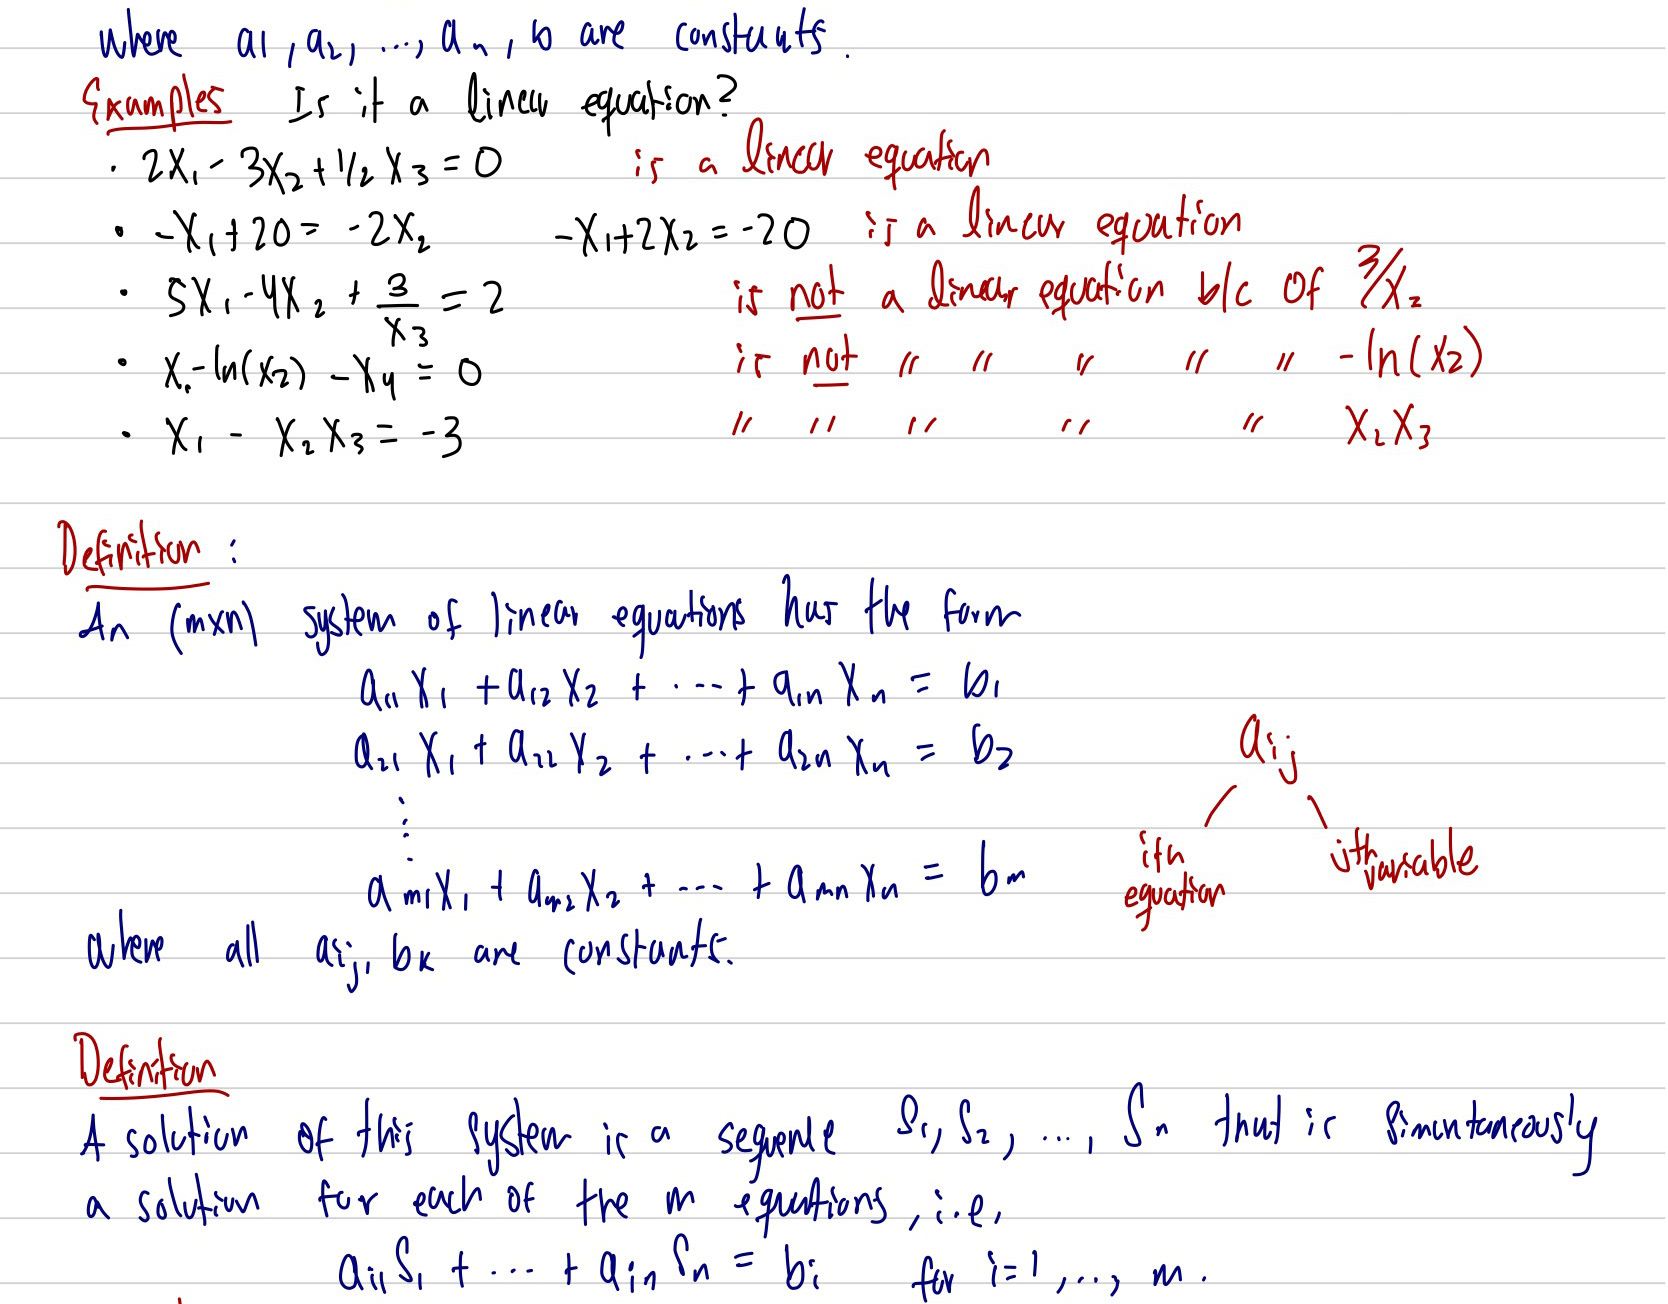 where a1, a2, ..., an, b are constants.
Examples Is it a linear equation?
· 2x1 - 3x2 + 1/2 x3 = 0 is a linear equation
· -x1 + 20 = -2x2 -x1 + 2x2 = -20 is a linear equation
· 5x1 - 4x2 + 3/x3 = 2 is not a linear equation b/c of 3/x2
· x1 - ln(x2) - x4 = 0 is not " " " " " -ln(x2)
· x1 - x2x3 = -3 " " " " " x2x3
Definition :
An (m×n) system of linear equations has the form
a11 x1 + a12 x2 + ... + a1n xn = b1
a21 x1 + a22 x2 + ... + a2n xn = b2
aij
⋮
ith equation
jth variable
am1 x1 + am2 x2 + ... + amn xn = bm
where all aij, bk are constants.
Definition
A solution of this system is a sequence S1, S2, ..., Sn that is simultaneously
a solution for each of the m equations, i.e,
ai1 S1 + ... + ain Sn = bi for i=1,..., m.